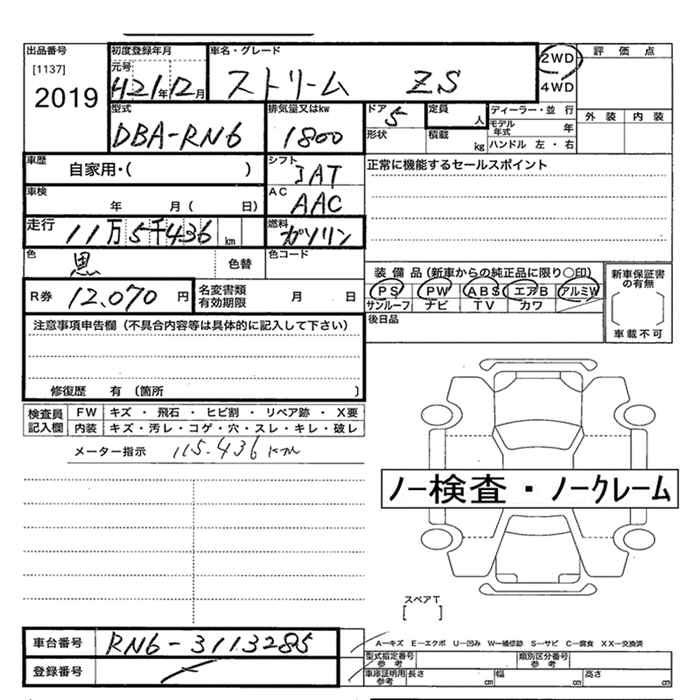 出品番号 初度登録年月 車名・グレード 2WD 評価点
[1137] 元号 4WD
2019 H21年12月 ストリーム ZS
型式 排気量又はkw ドア 定員 ディーラー・並行 外装 内装
DBA-RN6 1800 5 人 モデル年式 年
形状 積載 kg ハンドル 左・右
車歴 自家用・( ) シフト 正常に機能するセールスポイント
IAT
車検 年 月( 日) AC
AAC
走行 11万5千436km 燃料 ガソリン
色 黒 色替 色コード 装備品(新車からの純正品に限り○印) 新車保証書の有無
PS PW ABS エアB アルミW
R券 12,070円 名変書類有効期限 月 日 サンルーフ ナビ TV カワ
後日品 車載不可
注意事項申告欄(不具合内容等は具体的に記入して下さい)
修復歴 有(箇所 )
検査員記入欄 FW キズ・飛石・ヒビ割・リペア跡・X要
内装 キズ・汚レ・コゲ・穴・スレ・キレ・破レ
メーター指示 115.436km
ノー検査・ノークレーム
スペアT
[ ]
車台番号 RN6-3113285 A－キズ E－エクボ U－凹み W－補修跡 S－サビ C－腐食 XX－交換済
型式指定番号 参考 類別区分番号 参考
登録番号 車庫証明用 参考 長さ cm 幅 cm 高さ cm